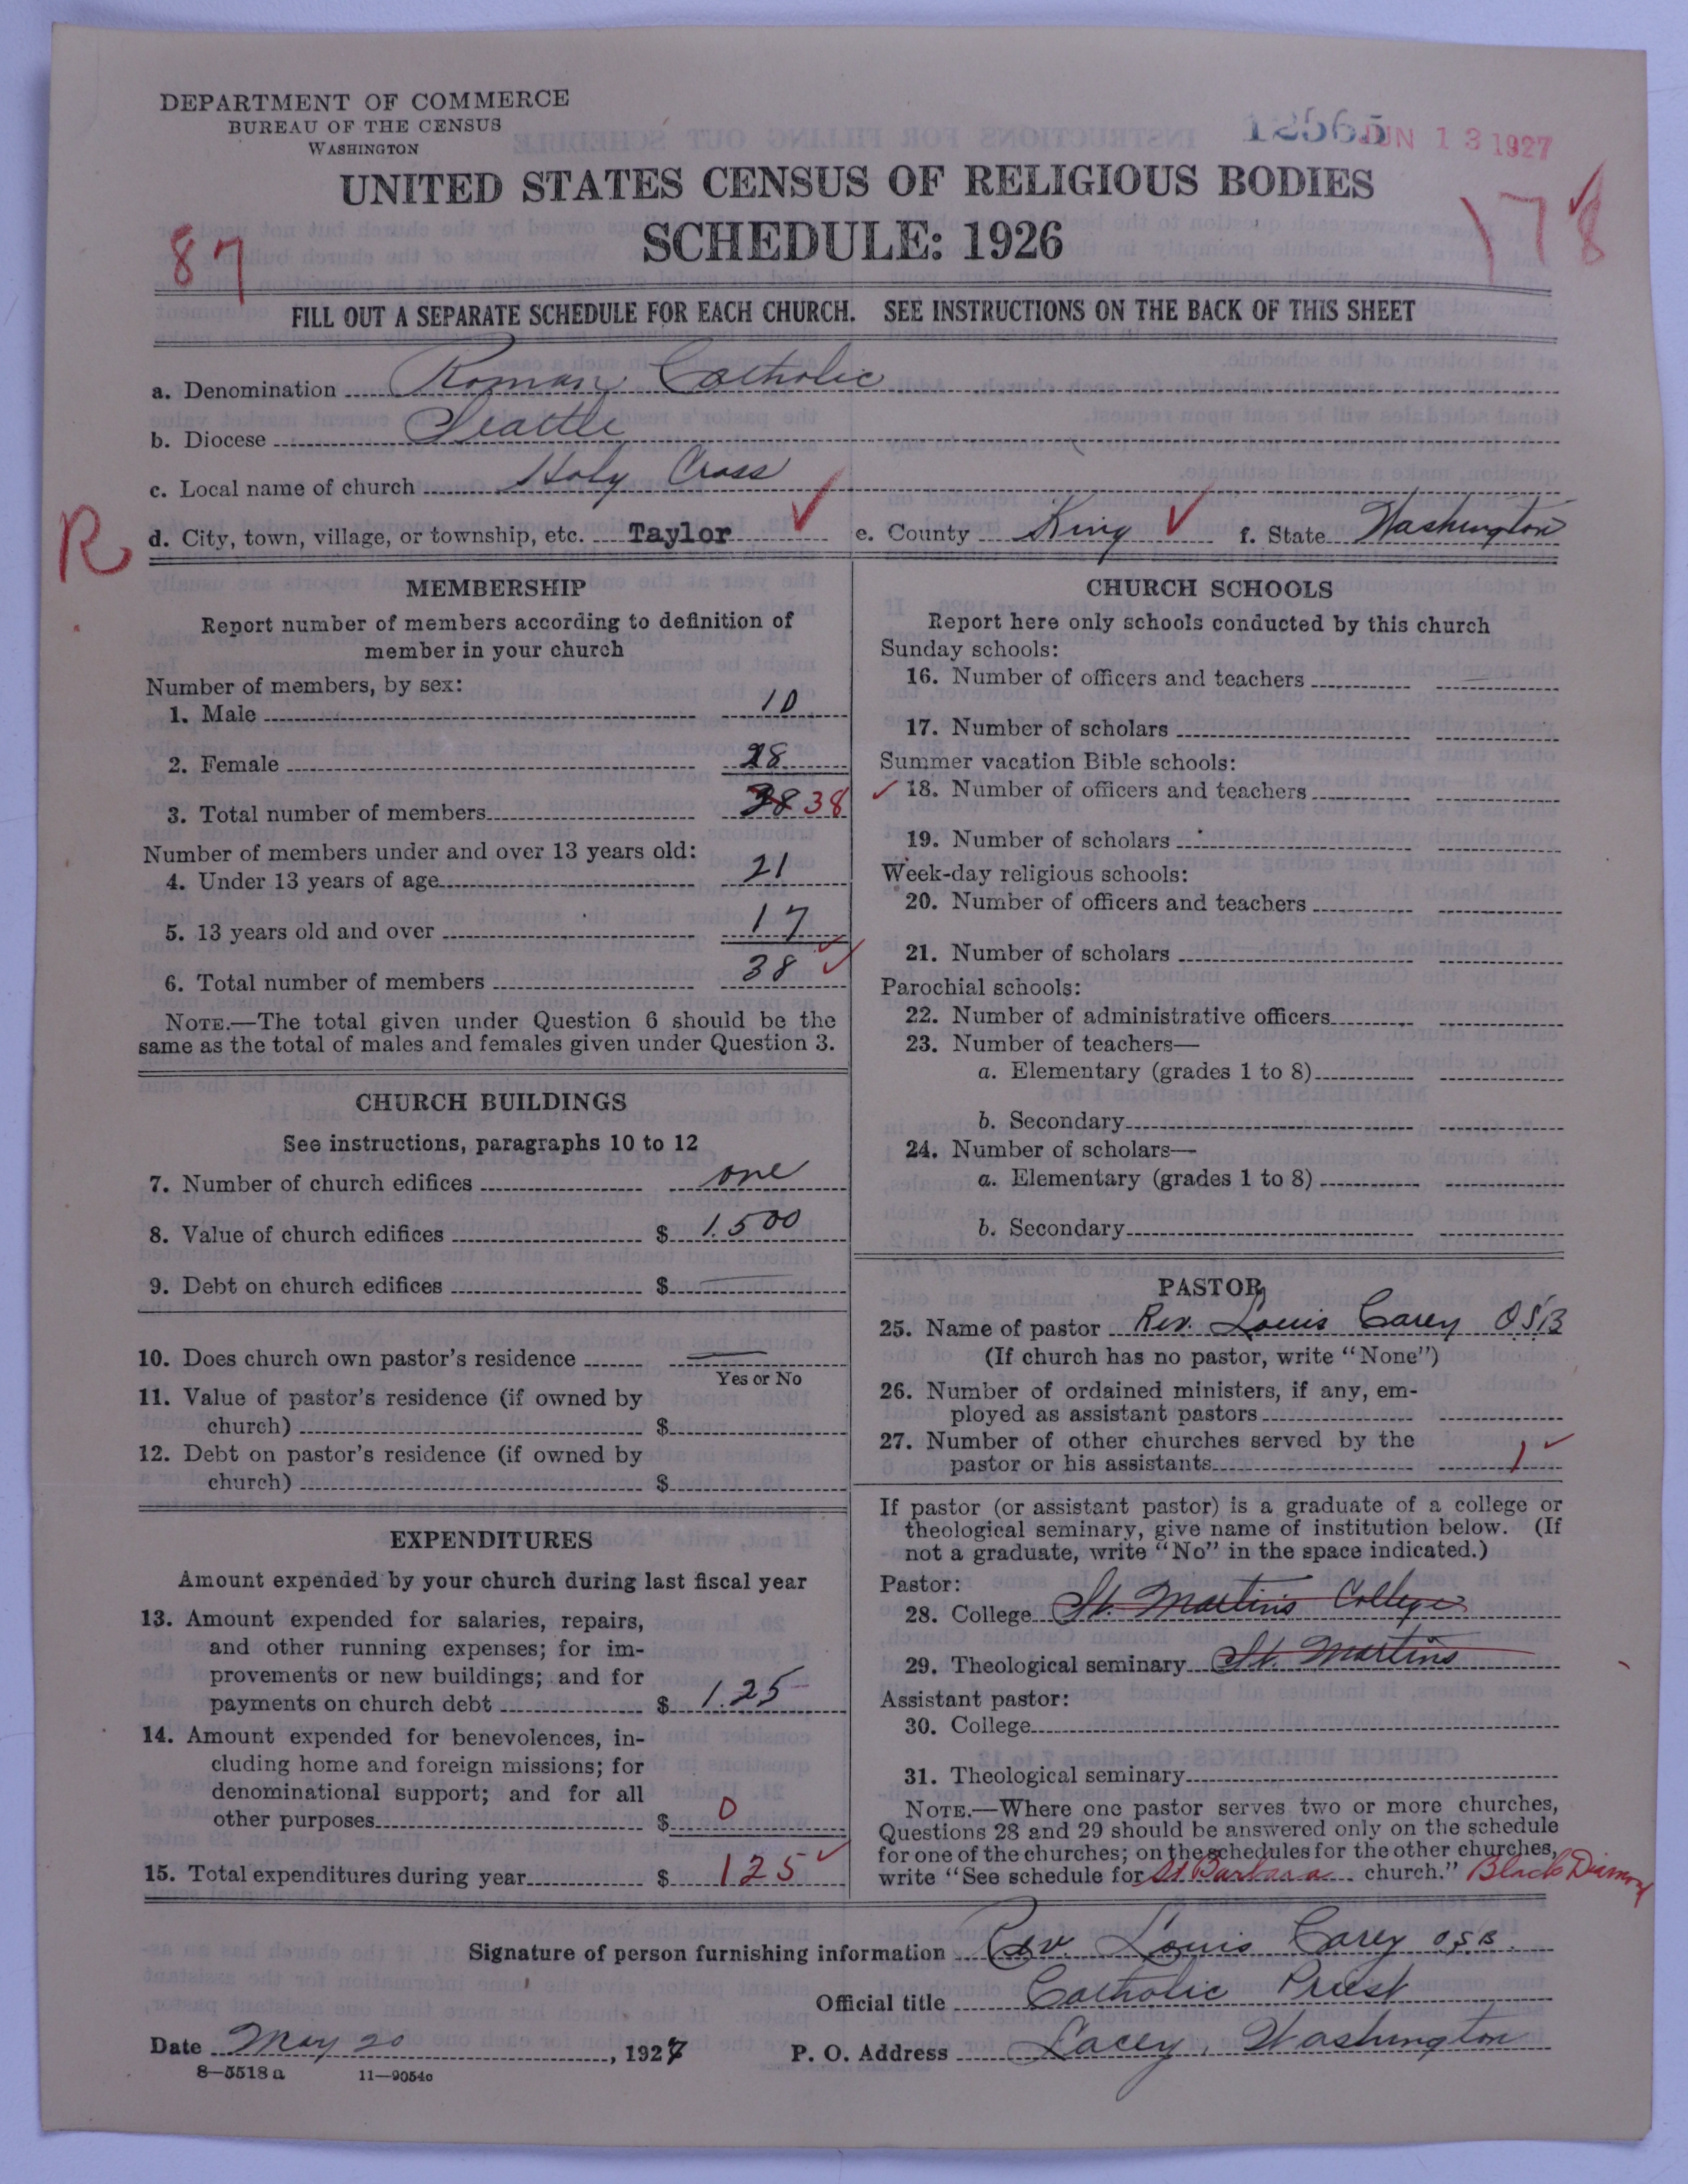 DEPARTMENT OF COMMERCE
BUREAU OF THE CENSUS
WASHINGTON
12565 JUN 13 1927
UNITED STATES CENSUS OF RELIGIOUS BODIES
SCHEDULE: 1926
87
178
FILL OUT A SEPARATE SCHEDULE FOR EACH CHURCH. SEE INSTRUCTIONS ON THE BACK OF THIS SHEET
a. Denomination Roman Catholic
b. Diocese Seattle
c. Local name of church Holy Cross
R
d. City, town, village, or township, etc. Taylor ✓ e. County King ✓ f. State Washington
MEMBERSHIP
Report number of members according to definition of
member in your church
Number of members, by sex:
1. Male 10
2. Female 28
3. Total number of members 38 38
Number of members under and over 13 years old:
4. Under 13 years of age 21
5. 13 years old and over 17
6. Total number of members 38 ✓
NOTE.—The total given under Question 6 should be the
same as the total of males and females given under Question 3.
CHURCH BUILDINGS
See instructions, paragraphs 10 to 12
7. Number of church edifices one
8. Value of church edifices $ 1.500
9. Debt on church edifices $ —
10. Does church own pastor's residence —
Yes or No
11. Value of pastor's residence (if owned by
church) $
12. Debt on pastor's residence (if owned by
church) $
EXPENDITURES
Amount expended by your church during last fiscal year
13. Amount expended for salaries, repairs,
and other running expenses; for im-
provements or new buildings; and for
payments on church debt $ 1.25
14. Amount expended for benevolences, in-
cluding home and foreign missions; for
denominational support; and for all
other purposes $ 0
15. Total expenditures during year $ 125 ✓
CHURCH SCHOOLS
Report here only schools conducted by this church
Sunday schools:
16. Number of officers and teachers —
17. Number of scholars
Summer vacation Bible schools:
✓ 18. Number of officers and teachers
19. Number of scholars
Week-day religious schools:
20. Number of officers and teachers
21. Number of scholars
Parochial schools:
22. Number of administrative officers
23. Number of teachers—
a. Elementary (grades 1 to 8)
b. Secondary
24. Number of scholars—
a. Elementary (grades 1 to 8)
b. Secondary
PASTOR
25. Name of pastor Rev. Louis Carey O.S.B
(If church has no pastor, write "None")
26. Number of ordained ministers, if any, em-
ployed as assistant pastors
27. Number of other churches served by the
pastor or his assistants 1 ✓
If pastor (or assistant pastor) is a graduate of a college or
theological seminary, give name of institution below. (If
not a graduate, write "No" in the space indicated.)
Pastor:
28. College St. Martins College
29. Theological seminary St. Martins
Assistant pastor:
30. College
31. Theological seminary
NOTE.—Where one pastor serves two or more churches,
Questions 28 and 29 should be answered only on the schedule
for one of the churches; on the schedules for the other churches,
write "See schedule for St Barbara church." Black Diamond
Signature of person furnishing information Rev. Louis Carey O.S.B.
Official title Catholic Priest
Date May 20, 1927 P. O. Address Lacey, Washington
8—5518 a 11—9054c